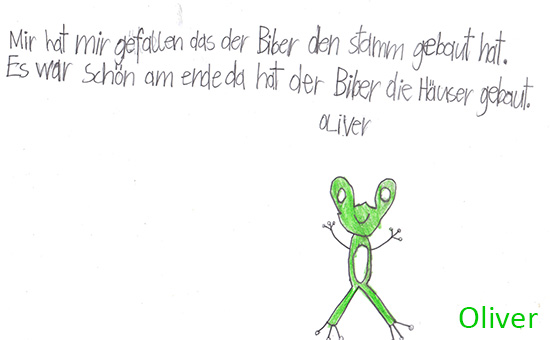 Mir hat mir gefallen das der Biber den stamm gebaut hat.
Es war schön am ende da hat der Biber die Häuser gebaut.
OLiver
Oliver